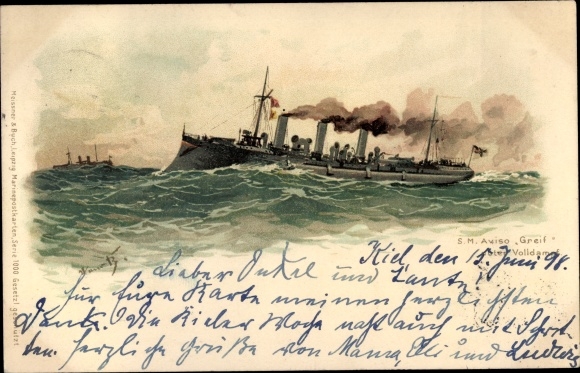 Meissner & Buch, Leipzig. Marinepostkarten, Serie 1008 Gesetzl. geschützt
S.M. Aviso „Greif“
unter Volldampf
Kiel den 15. Juni 98.
Lieber Onkel und Tante!
für Eure Karte meinen herzlichsten
Dank. Die Kieler Woche naht auch mit Schrit-
ten. herzliche Grüße von Mama, Elli und Ludwig